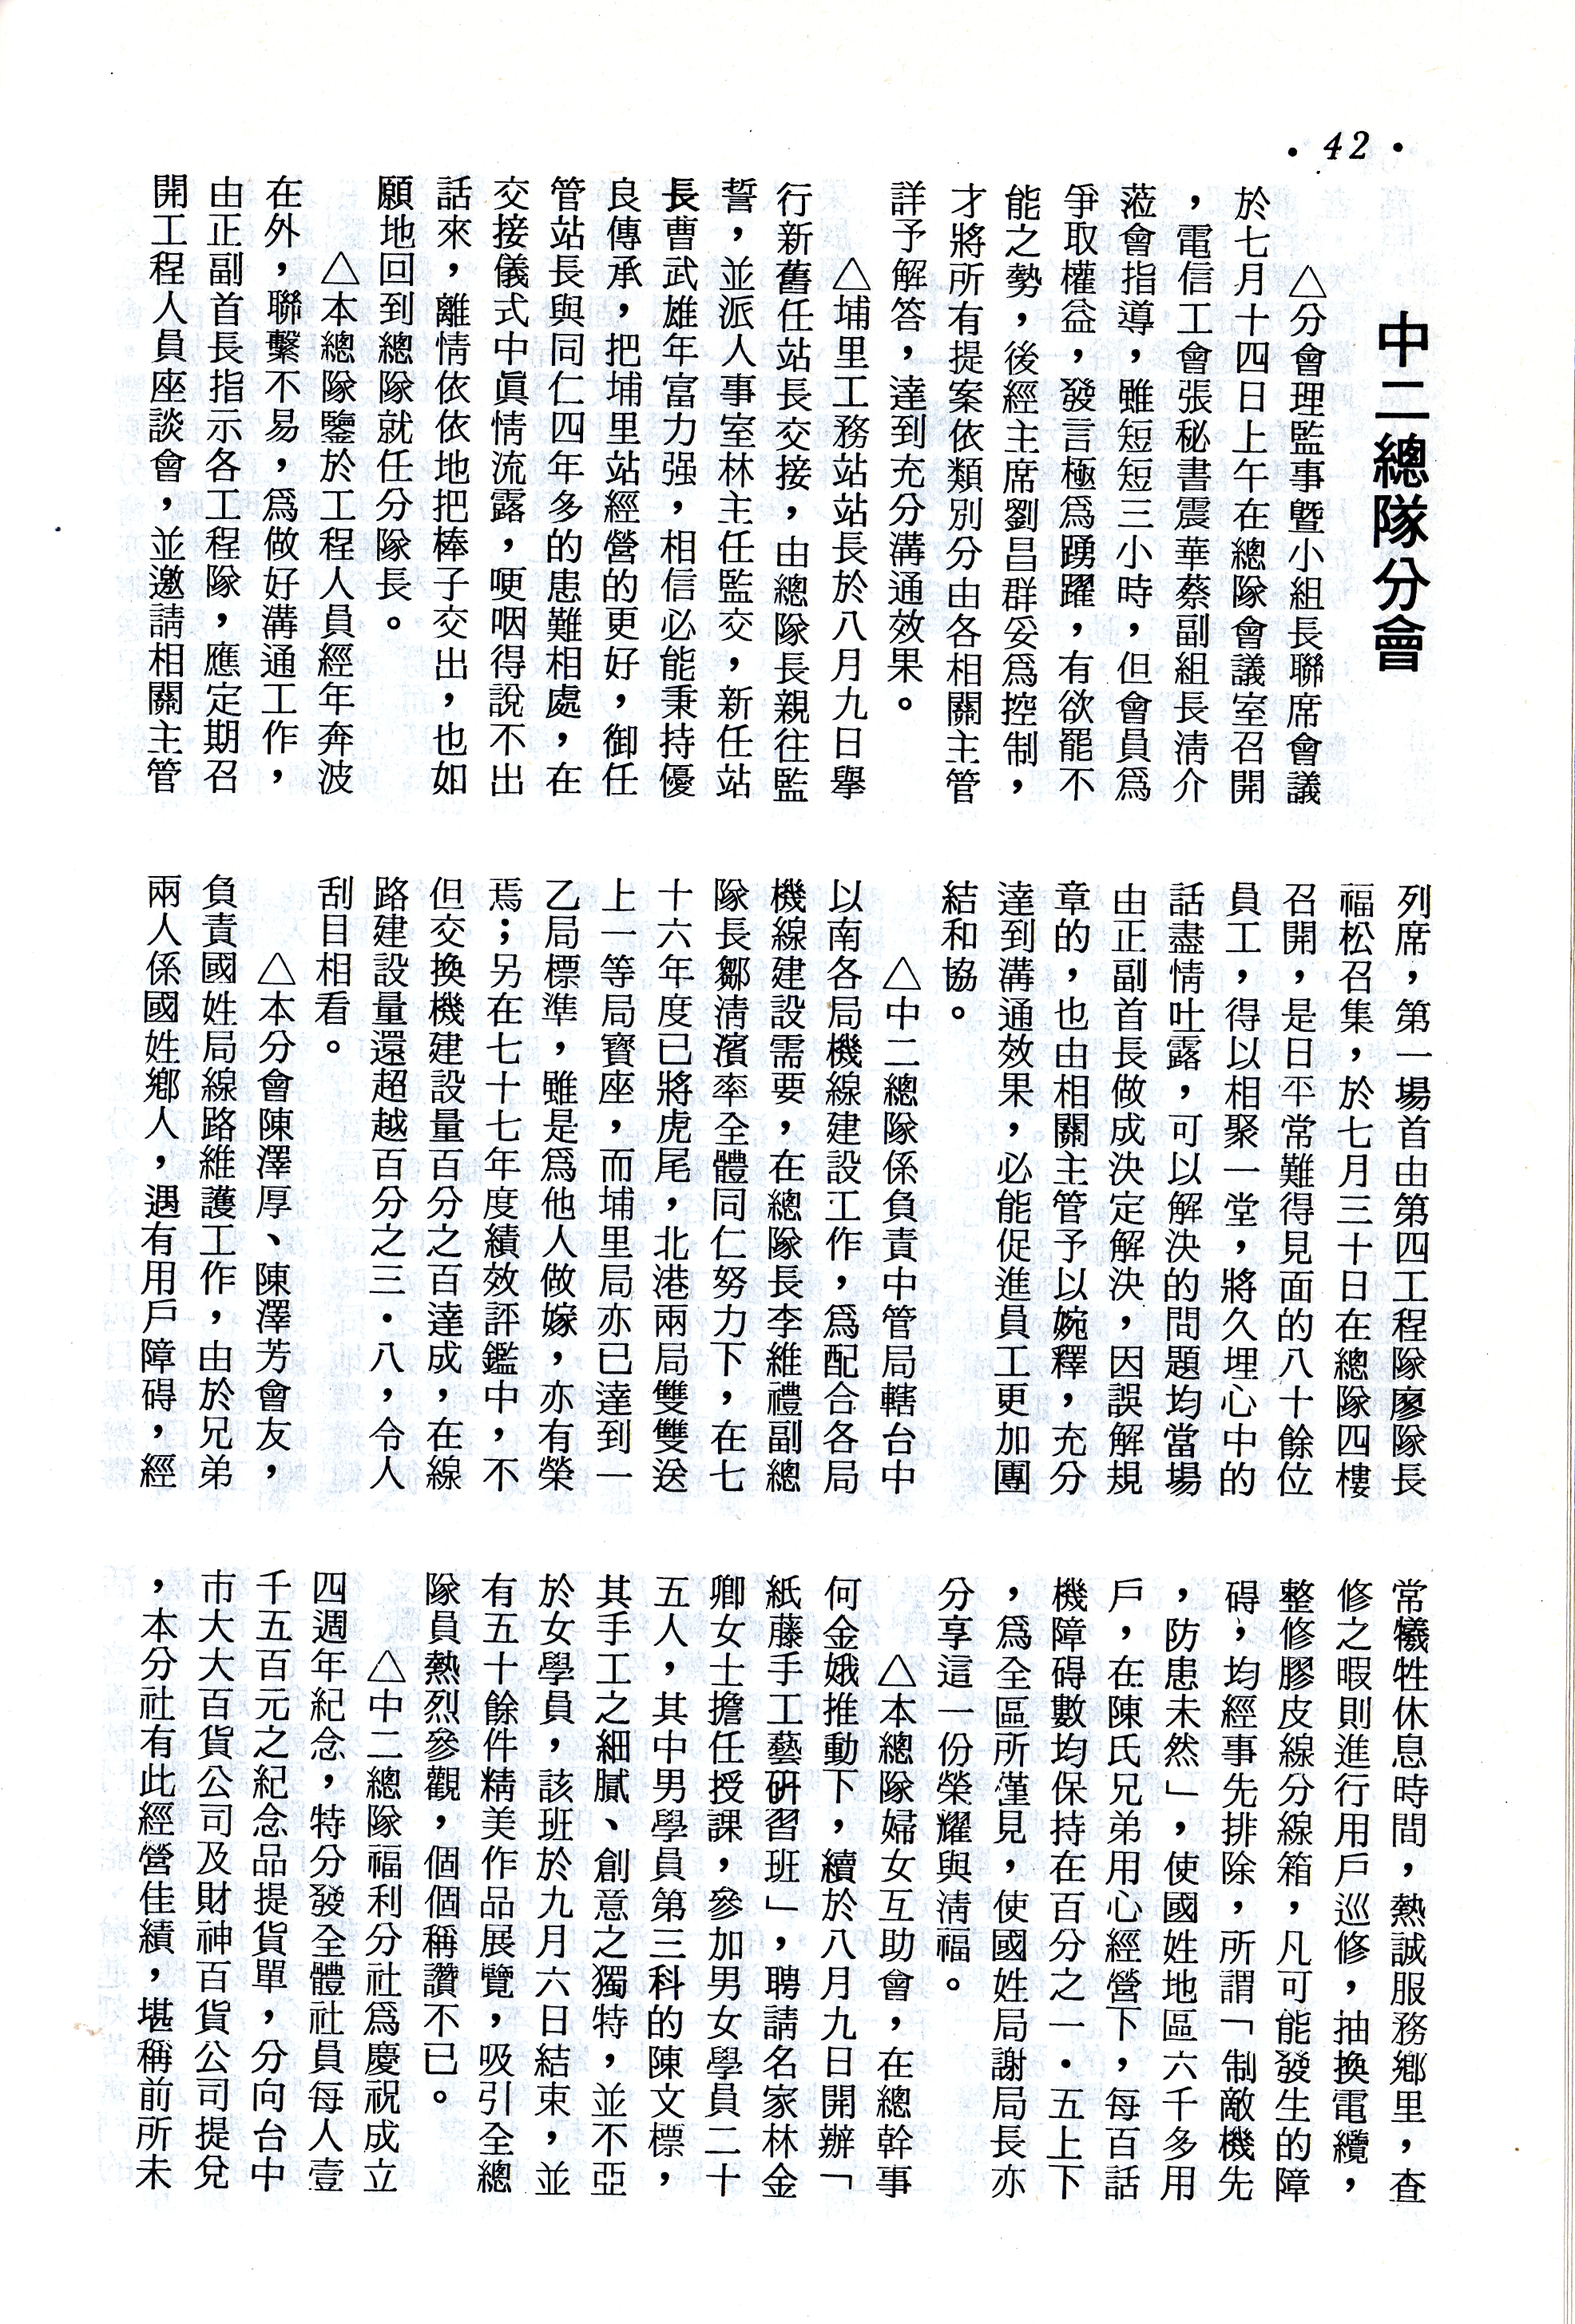 • 42 •
中二總隊分會
△分會理監事暨小組長聯席會議
於七月十四日上午在總隊會議室召開
，電信工會張秘書震華蔡副組長淸介
蒞會指導，雖短短三小時，但會員爲
爭取權益，發言極爲踴躍，有欲罷不
能之勢，後經主席劉昌群妥爲控制，
才將所有提案依類別分由各相關主管
詳予解答，達到充分溝通效果。
△埔里工務站站長於八月九日擧
行新舊任站長交接，由總隊長親往監
誓，並派人事室林主任監交，新任站
長曹武雄年富力强，相信必能秉持優
良傳承，把埔里站經營的更好，御任
管站長與同仁四年多的患難相處，在
交接儀式中眞情流露，哽咽得說不出
話來，離情依依依地把棒子交出，也如
願地回到總隊就任分隊長。
△本總隊鑒於工程人員經年奔波
在外，聯繫不易，爲做好溝通工作，
由正副首長指示各工程隊，應定期召
開工程人員座談會，並邀請相關主管
列席，第一場首由第四工程隊廖隊長
福松召集，於七月三十日在總隊四樓
召開，是日平常難得見面的八十餘位
員工，得以相聚一堂，將久埋心中的
話盡情吐露，可以解決的問題均當場
由正副首長做成決定解決，因誤解規
章的，也由相關主管予以婉釋，充分
達到溝通效果，必能促進員工更加團
結和協。
△中二總隊係負責中管局轄台中
以南各局機線建設工作，爲配合各局
機線建設需要，在總隊長李維禮副總
隊長鄒淸濱率全體同仁努力下，在七
十六年度已將虎尾，北港兩局雙雙送
上一等局寶座，而埔里局亦已達到一
乙局標準，雖是爲他人做嫁，亦有榮
焉；另在七十七年度績效評鑑中，不
但交換機建設量百分之百達成，在線
路建設量還超越百分之三・八，令人
刮目相看。
△本分會陳澤厚、陳澤芳會友，
負責國姓局線路維護工作，由於兄弟
兩人係國姓鄕人，遇有用戶障碍，經
常犧牲休息時間，熱誠服務鄕里，查
修之暇則進行用戶巡修，抽換電纜，
整修膠皮線分線箱，凡可能發生的障
碍，均經事先排除，所謂「制敵機先
，防患未然」，使國姓地區六千多用
戶，在陳氏兄弟用心經營下，每百話
機障碍數均保持在百分之一・五上下
，爲全區所僅見，使國姓局謝局長亦
分享這一份榮耀與淸福。
△本總隊婦女互助會，在總幹事
何金娥推動下，續於八月九日開辦「
紙藤手工藝研習班」，聘請名家林金
卿女士擔任授課，參加男女學員二十
五人，其中男學員第三科的陳文標，
其手工之細膩、創意之獨特，並不亞
於女學員，該班於九月六日結束，並
有五十餘件精美作品展覽，吸引全總
隊員熱烈參觀，個個稱讚不已。
△中二總隊福利分社爲慶祝成立
四週年紀念，特分發全體社員每人壹
千五百元之紀念品提貨單，分向台中
市大大百貨公司及財神百貨公司提兌
，本分社有此經營佳績，堪稱前所未